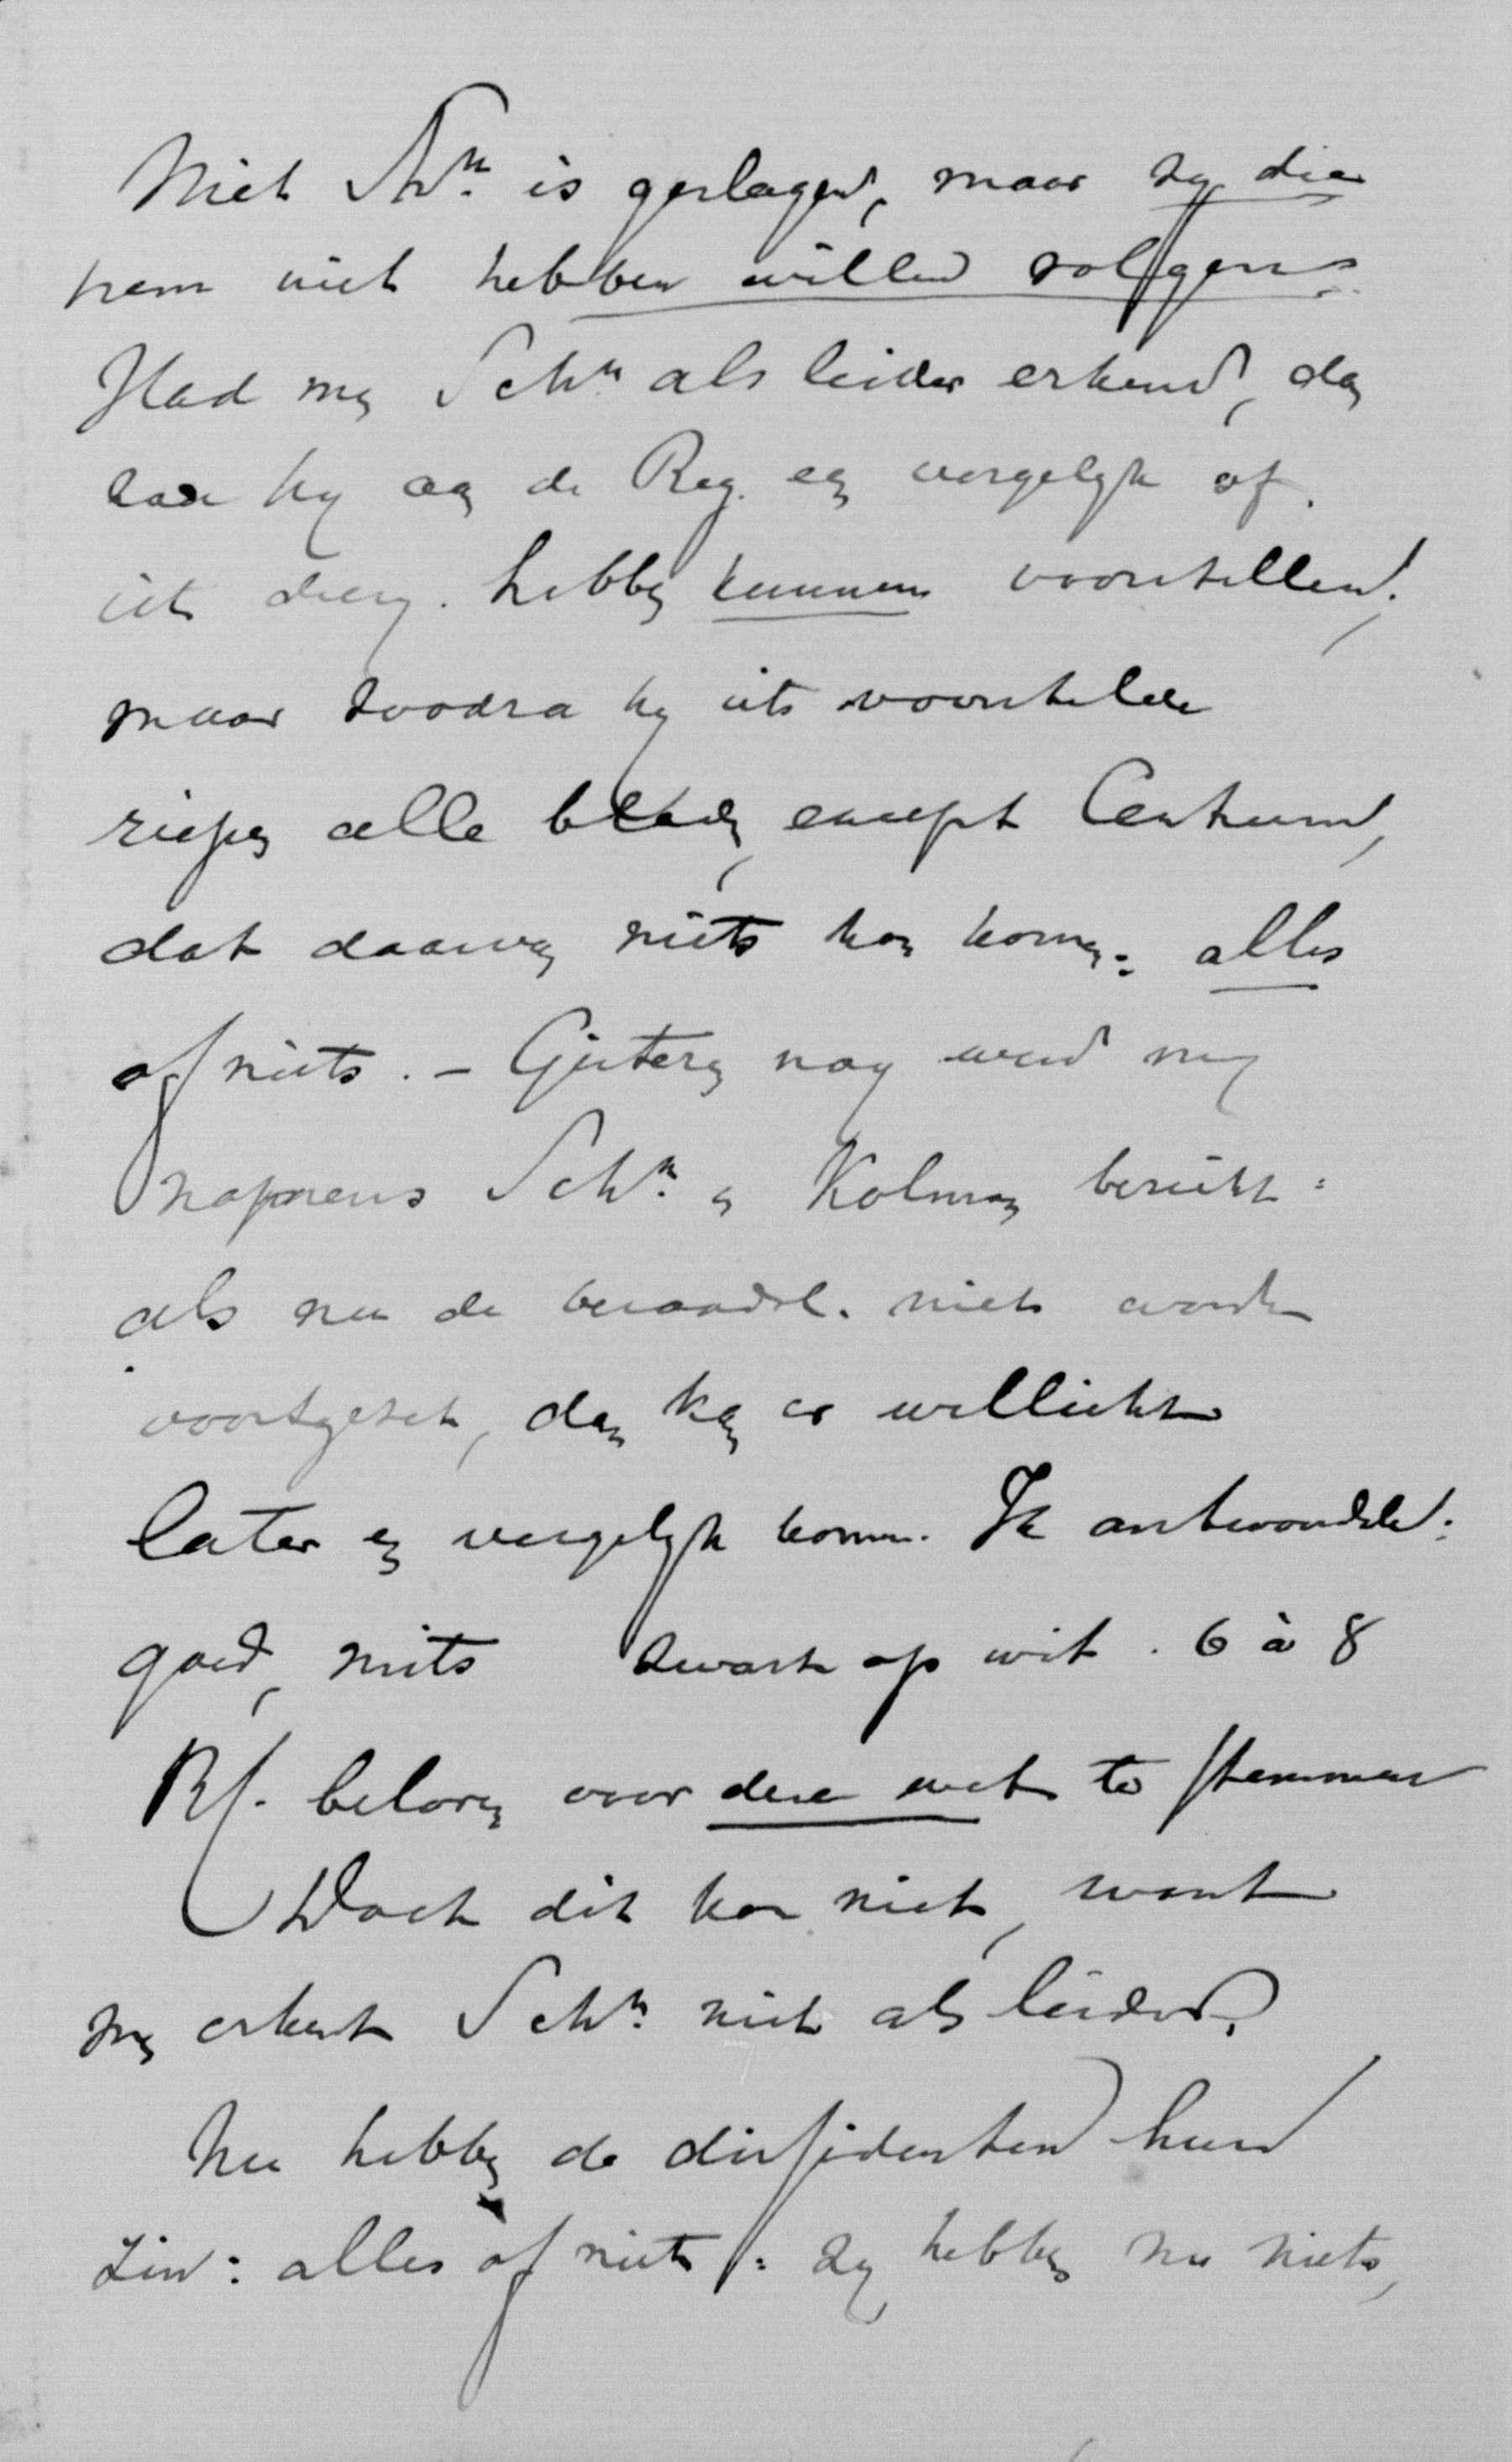 Niet Schn. is geslagen, maar zy die
hem niet hebben willen volgen.
Had men Schn. als leider erkend, dan
zou hy aan de Reg. een vergelyk of
iets derg. hebben kunnen voorstellen,
maar zoodra hy iets voorstelde
riepen alle bladen, except Centrum,
dat daarvan niets kon komen: alles
of niets. - Gisteren nog werd my
namens Schn. en Kolkman bericht:
als nu de beraadsl. niet worden
voortgezet, dan kan er wellicht
later een vergelyk komen. Ik antwoordde:
goed, mits zwart op wit. 6 à 8
beloven voor deze wet te stemmen
Doch dit kon niet, want
men erkent Schn. niet als leider.
Nu hebben de dissidenten hun
zin: alles of niets: zy hebben nu niets,